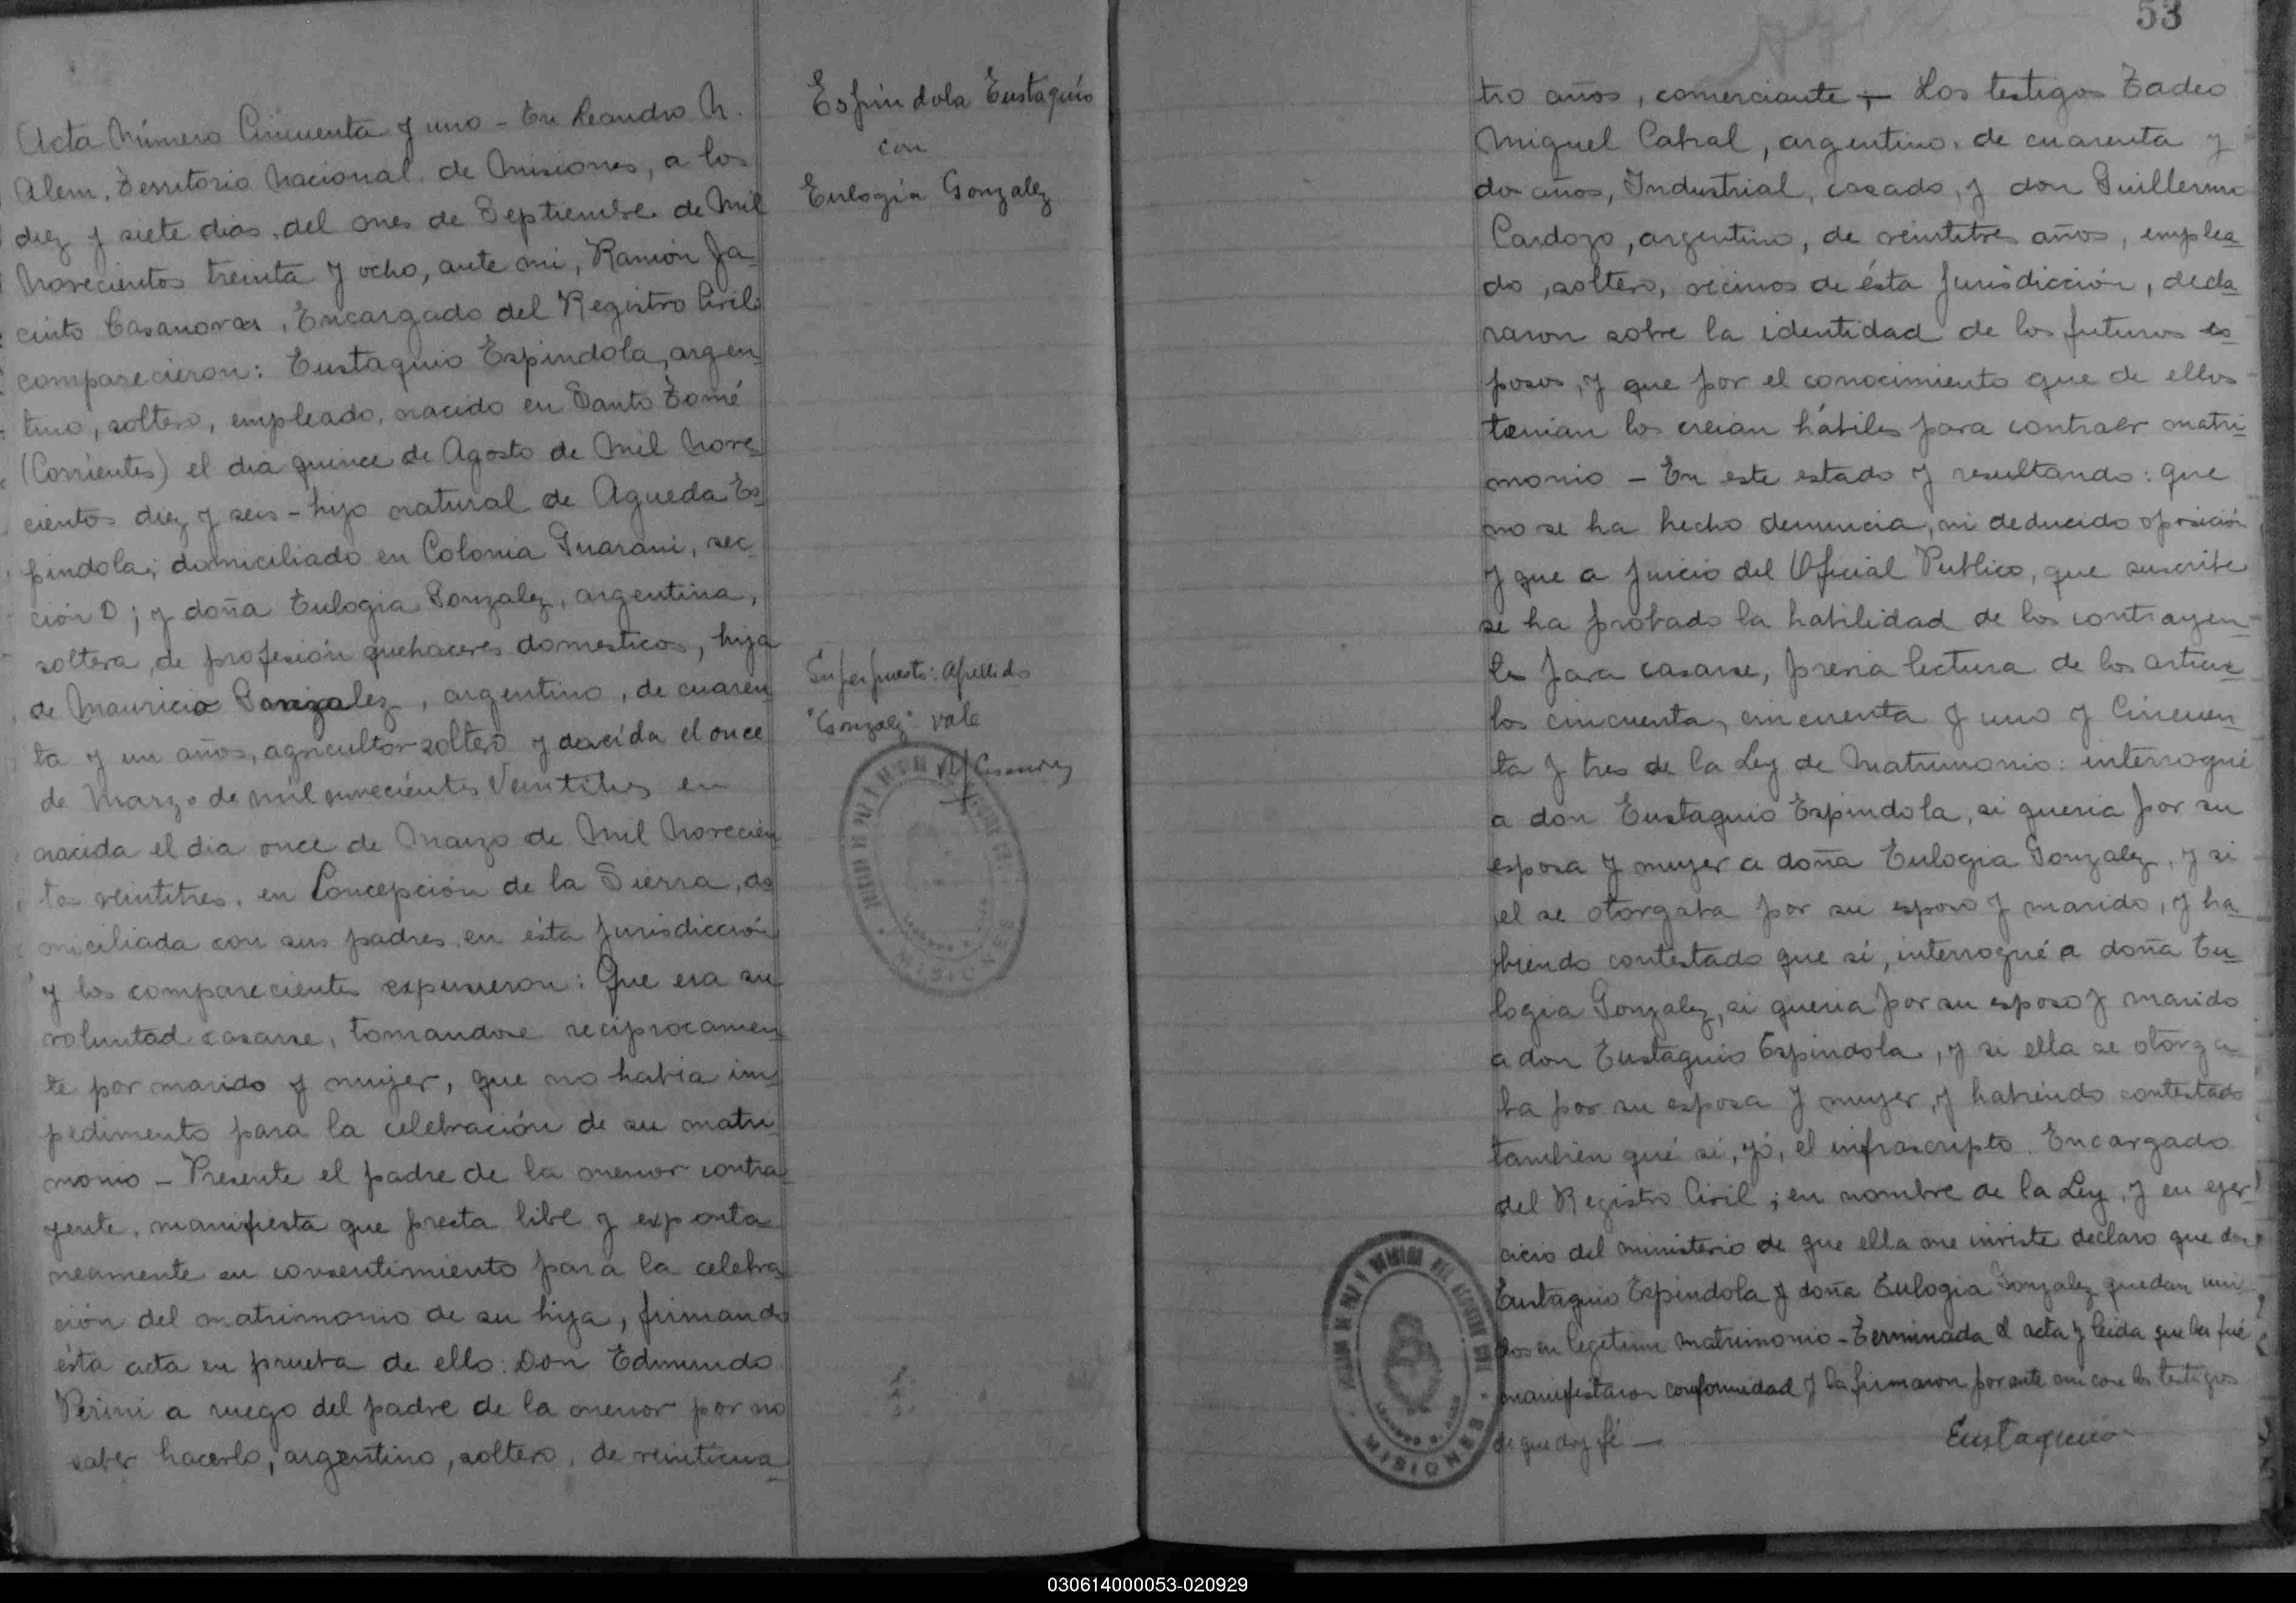 Acta Número Cincuenta y uno - En Leandro N.
Alem, Territorio Nacional de Misiones, a los
diez y siete dias, del mes de Septiembre de Mil
Novecientos treinta y ocho, ante mi, Ramón Ja-
cinto Casanovas, Encargado del Registro Civil
comparecieron: Eustaquio Espindola, argen-
tino, soltero, empleado, nacido en Santo Tomé
(Corrientes) el dia quince de Agosto de Mil Nove-
cientos diez y seis - hijo natural de Agueda Es-
pindola; domiciliado en Colonia Guarani, sec-
ción D; y doña Eulogia Gonzalez, argentina,
soltera, de profesión quehaceres domesticos, hija
de Mauricio Gonzalez, argentino, de cuaren-
ta y un años, agricultor soltero y nacida el once
de Marzo de mil novecientos Veintitres en
nacida el dia once de Marzo de Mil Novecien-
tos veintitres, en Concepción de la Sierra, do-
miciliada con sus padres en ésta Jurisdicción
y los comparecientes expusieron: Que era su
voluntad casarse, tomandose reciprocamen-
te por marido y mujer, que no habia im-
pedimento para la celebración de su matri-
monio - Presente el padre de la menor contra-
yente, manifiesta que presta libre y exponta
neamente su consentimiento para la celebra-
ción del matrimonio de su hija, firmando
ésta acta en prueba de ello: Don Edmundo
Perini a ruego del padre de la menor por no
saber hacerlo, argentino, soltero, de veinticua-
Espíndola Eustaquio
con
Eulogia Gonzalez
Superpuesto: Apellido
"Gonzalez" vale
MISIONES
53
tro años, comerciante - Los testigos Tadeo
Miguel Cabral, argentino, de cuarenta y
dos años, Industrial, casado, y don Guillermo
Cardozo, argentino, de veintitres años, emplea-
do, soltero, vecinos de ésta Jurisdicción, decla-
raron sobre la identidad de los futuros es-
posos, y que por el conocimiento que de ellos
tenian los creian hábiles para contraer matri-
monio - En este estado y resultando: que
no se ha hecho denuncia, ni deducido oposición
y que a Juicio del Oficial Publico, que suscribe
se ha probado la habilidad de los contrayen-
tes para casarse, previa lectura de los articu-
los cincuenta, cincuenta y uno y Cincuen-
ta y tres de la Ley de Matrimonio: interrogué
a don Eustaquio Espindola, si queria por su
esposa y mujer a doña Eulogia Gonzalez, y si
el se otorgaba por su esposo y marido, y ha-
biendo contestado que sí, interrogué a doña Eu-
logia Gonzalez, si queria por su esposo y marido
a don Eustaquio Espindola, y si ella se otorga
ba por su esposa y mujer, y habiendo contestado
tambien qué sí, yó, el infrascripto Encargado
del Registro Civil; en nombre de la Ley, y en ejer-
cicio del ministerio de que ella me inviste declaro que don
Eustaquio Espindola y doña Eulogia Gonzalez quedan uni
dos en legitimo matrimonio - Terminada el acta y leida que les fué
manifestaron conformidad y la firmaron por ante mi con los testigos
de que doy fé -
Eustaquio
MISIONES
030614000053-020929